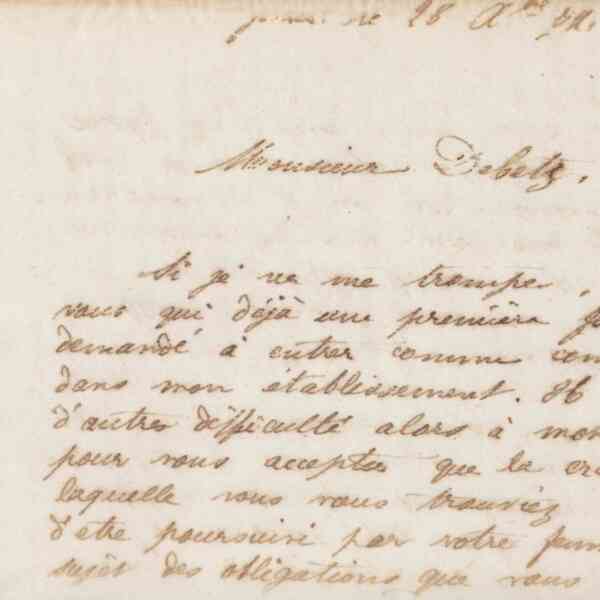 le 28
Monsieur Debetz,
Si je ne me trompe,
vous qui déjà une première
demandé à entrer comme
dans mon établissement.
d'autres difficulté alors à
pour vous accepter que la
laquelle vous vous trouviez
d'etre poursuivi par votre
sujet des obligations que vous